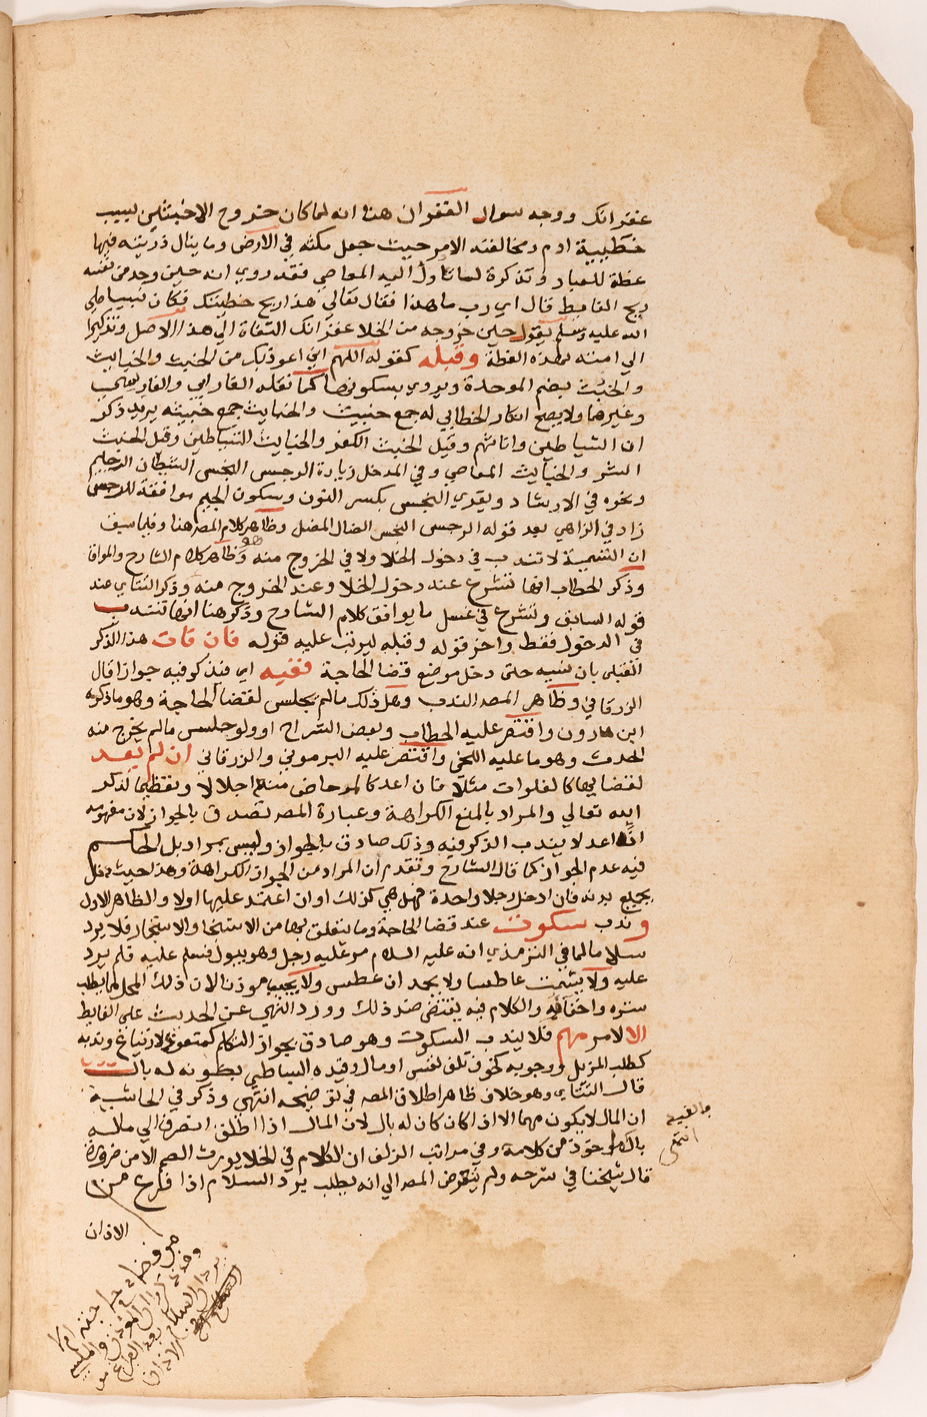 غفرانك ووجه سوال الغفران هنا انه لما كان خروج الاخبثين بسبب
خطيية ادم ومخالفته الامر حيث جعل مكثه في الارض وما ينال ذريته فيها
عظة للعباد وتذكرة لما تاول اليه المعاصي فقد روي انه حين وجد من نفسه
ريح الغايط قال اي رب ما هذا فقال تعالي هذا ريح خطيتك فكان نبينا صلي
الله عليه وسلم يقول حين خروجه من الخلا غفرانك التفاتا الي هذا الاصل وتذكيرا
الي امته بهذه العظة وقبله كقوله اللهم اني اعوذ بك من الخبث والخبايث
والخبث بضم الموحدة ويروي بسكونها كما نقله الفارابي والفارسي
وغيرهما ولا يصح انكار الخطابي له جمع خبيث والخبايث جمع خبيثه يريد ذكر
ان الشياطين واناثهم وقيل الخبث الكفر والخبايث الشياطين وقيل الخبث
الشر والخبايث المعاصي وفي المدخل زيادة الرجس النجس الشيطان الرجيم
ونحوه في الارشاد ويقري النجس بكسر النون وسكون الجيم موافقة للرجس
زاد في الزاهي بعد قوله الرجس النجس الضال المضل وظاهر كلام المصر هنا وفيما سبق
ان التسمية لا تندب في دخول الخلا ولا في الخروج منه وهو ظاهر كلام الشارح والمواق
وذكر الحطاب انها تشرع عند دخول الخلا وعند الخروج منه وذكر التتاي عند
قوله السابق وتشرع في غسل ما يوافق كلام الشارح وذكر هنا انها تندب
في الدخول فقط واخر قوله وقبله ليرتب عليه قوله فان فات هذا الذكر
القبلي بان نسيه حتي دخل موضع قضا الحاجة ففيه اي فيذكر فيه جوازا قال
الزرقاني وظاهر المصر الندب وهل ذلك ما لم يجلس لقضا الحاجة وهو ما ذكره
ابن هارون واقتصر عليه الحطاب وبعض الشراح او ولو جلس ما لم يخرج منه
الحدث وهو ما عليه اللخمي واقتصر عليه البرموني والزرقاني ان لم يعد
لقضايها كالفلوات مثلا فان اعد كالمرحاض منع اجلالا وتعظيما لذكر
الله تعالي والمراد بالمنع الكراهة وعبارة المصر تصدق بالجواز لان مفهومه
انه اعد لا يندب الذكر فيه وذلك صادق بالجواز وليس بمراد بل الحكم
فيه عدم الجواز كما قال الشارح وتقدم ان المراد من الجواز الكراهة وهذا حيث دخل
بجميع بدنه فان ادخل رجلا واحدة فهل هي كذلك او ان اعتمد عليها اولا والظاهر الاول
وندب سكوت عند قضا الحاجة وما يتعلق بها من الاستنجا والاستجمار فلا يرد
سلاما لما في الترمذي انه عليه السلام مر عليه رجل وهو يبول فسلم عليه فلم يرد
عليه ولا يشمت عاطسا ولا يحمد ان عطس ولا يجيب موذنا لان ذلك المحل مما يطلب
ستره واخفاؤه والكلام فيه يقتضي ضد ذلك وورد النهي عن الحديث علي الغايط
الا لامر مهم فلا يندب السكوت وهو صادق بجواز التكلم كمتعوذ لارتياع وندبه
كطلب المزيل ووجوبه كخوف تلف نفس او مال وقيده البساطي بكونه له بال
قال التتاي وهو خلاف ظاهر اطلاق المصر في توضيحه انتهي وذكر في الحاشية
ان المال لا يكون مهما الا اذا كان له بال لان المال اذا اطلق انصرف الي ما له
بال كما يوخذ من كلامه وفي مراتب الزلف ان الكلام في الخلا يورث الصمم الا من ضرورة
قال شيخنا في شرحه ولم يتعرض المصر الي انه يطلب يرد السلام اذا فرغ من
الاذان